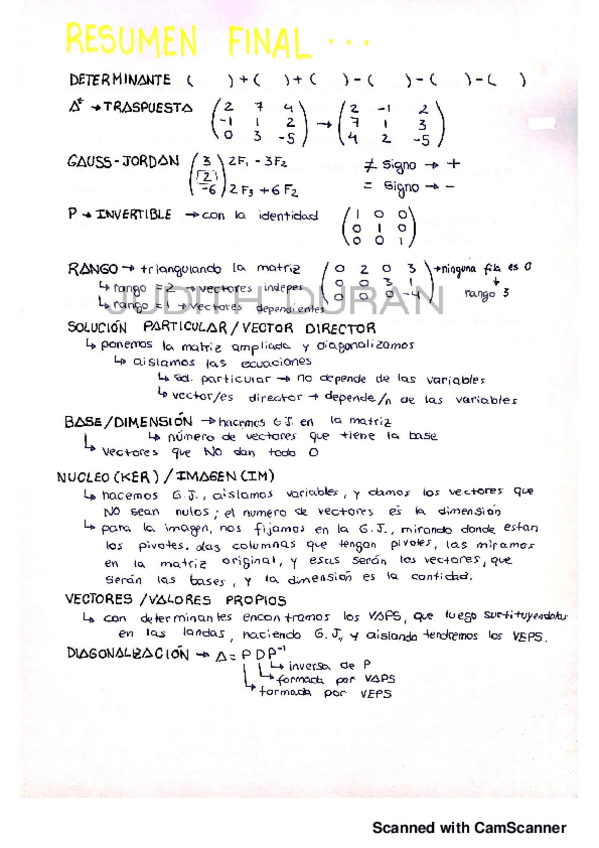 RESUMEN FINAL ...
DETERMINANTE ( ) + ( ) + ( ) - ( ) - ( ) - ( )
Aᵗ → TRASPUESTA (2 7 4 → (2 -1 2
-1 1 2 7 1 3
0 3 -5) 4 2 -5)
GAUSS-JORDAN (3 2F₁ - 3F₂ ≠ signo → +
2
-6) 2F₃ + 6F₂ = signo → -
P → INVERTIBLE → con la identidad (1 0 0
0 1 0
0 0 1)
RANGO → triangulando la matriz (0 2 0 3 → ninguna fila es 0
↳ rango = 2 → vectores indepes 0 0 3 1 ↓
↳ rango = 1 → vectores dependientes 0 0 0 -4) rango 3
JUDITH DURAN
SOLUCIÓN PARTICULAR/VECTOR DIRECTOR
↳ ponemos la matriz ampliada y diagonalizamos
↳ aislamos las ecuaciones
↳ sol. particular → no depende de las variables
↳ vector/es director → depende/n de las variables
BASE/DIMENSIÓN → hacemos G.J. en la matriz
↳ número de vectores que tiene la base
↳ vectores que NO dan todo 0
NUCLEO (KER) / IMAGEN (IM)
↳ hacemos G.J., aislamos variables, y damos los vectores que
NO sean nulos; el numero de vectores es la dimensión
↳ para la imagen, nos fijamos en la G.J., mirando donde estan
los pivotes. Las columnas que tengan pivotes, las miramos
en la matriz original, y esas serán los vectores, que
serán las bases, y la dimensión es la cantidad.
VECTORES /VALORES PROPIOS
↳ con determinantes encontramos los VAPS, que luego surtituyendolos
en las landas, haciendo G.J., y aislando tendremos los VEPS.
DIAGONALIZACIÓN → A = P D P⁻¹
↳ inversa de P
↳ formada por VAPS
↳ formada por VEPS
Scanned with CamScanner